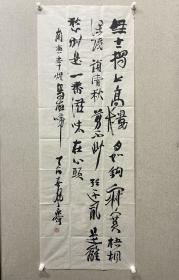 無言獨上高樓月如鉤寂寞梧桐
深院鎖清秋剪不斷理還亂是離
愁別是一番滋味在心頭
南唐李煜烏夜啼 丁酉